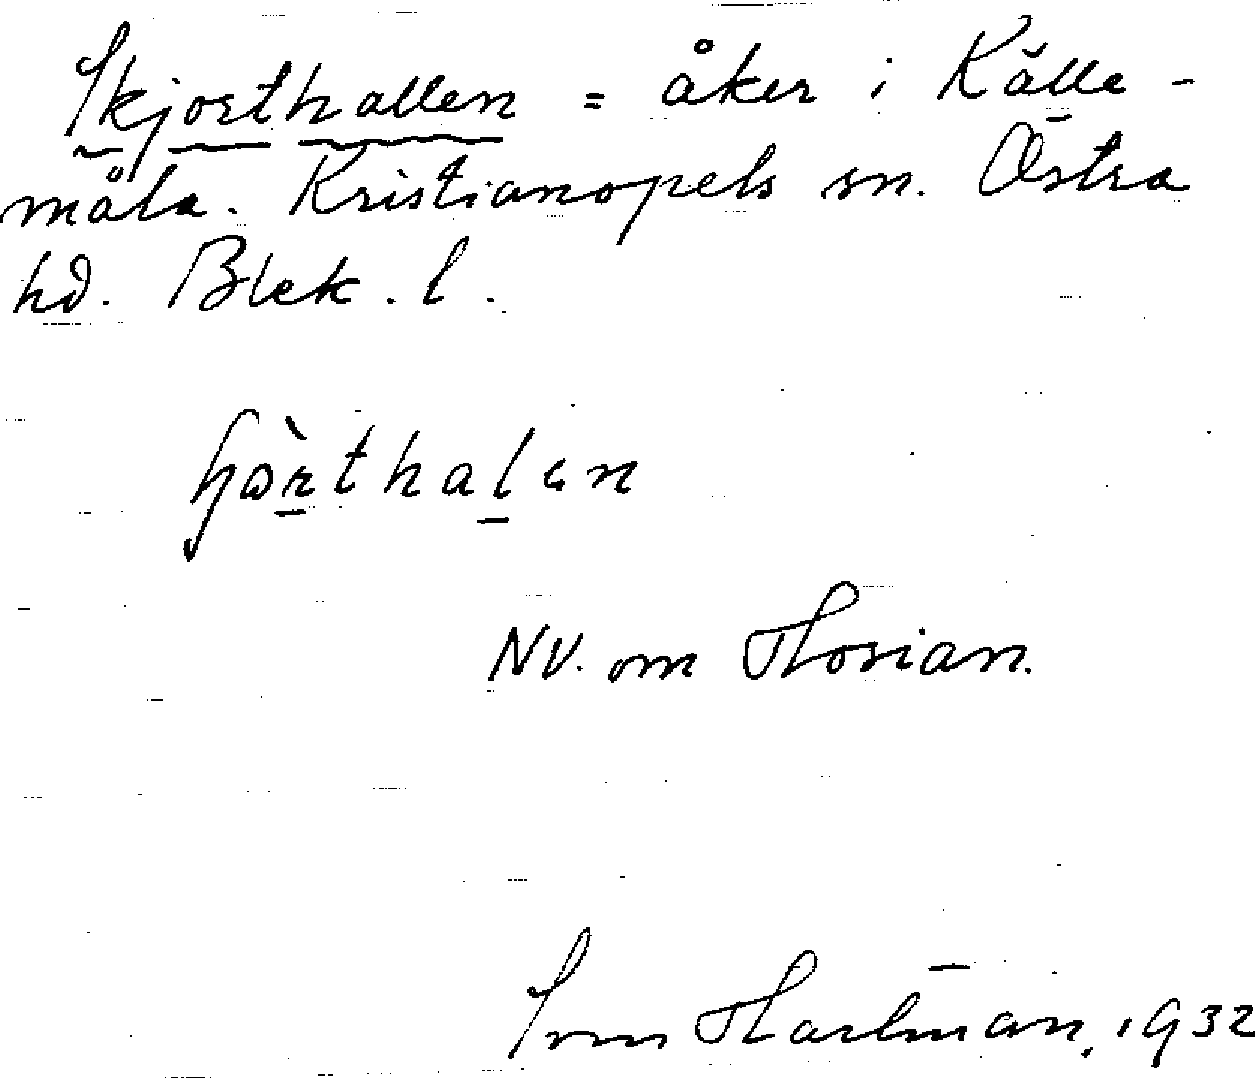 Skjorthallen = åker i Källe-
måla. Kristianopels sn. Östra
hd. Blek. l.
NV. om Horian.
Sven Hartman, 1932